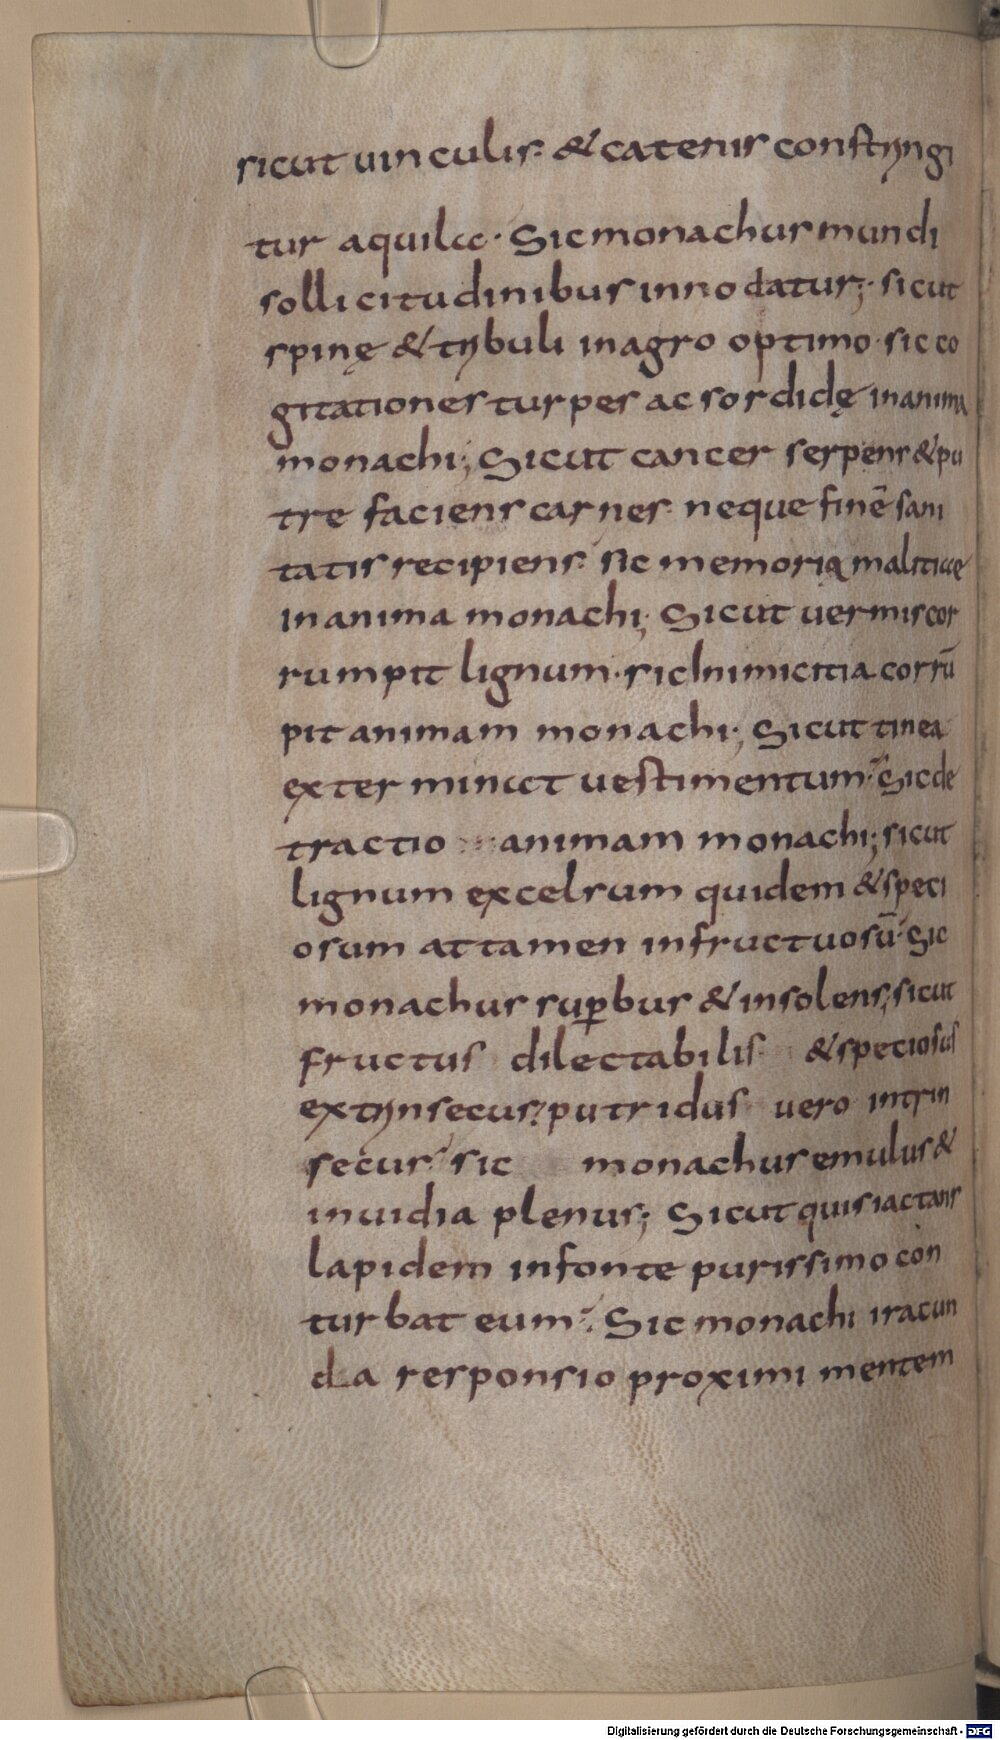 sicut uinculis & catenis constringi
tur aquila · Sic monachus mundi
sollicitudinibus innodatur; sicut
spinę & tribuli in agro optimo · sic co
gitationes turpes ac sordidę in anima
monachi; Sicut cancer serpens & pu
tre faciens carnes neque finē sani
tatis recipiens · sic memoria malitiae
in anima monachi; Sicut uermis cor
rumpit lignum · sic Inimicitia corrū
pit animam monachi; Sicut tinea
exterminat uestimentum · Sic de
tractio animam monachi; sicut
lignum excelsum quidem & speci
osum attamen infructuosū · Sic
monachus suꝑbus & insolens; sicut
fructus dilectabilis & speciosus
extrinsecus · putridus uero intrin
secus · sic monachus emulus &
inuidia plenus; Sicut quis iactans
lapidem in fonte purissimo con
turbat eum · Sic monachi iracun
dia responsio proximi mentem
Digitalisierung gefördert durch die Deutsche Forschungsgemeinschaft - DFG